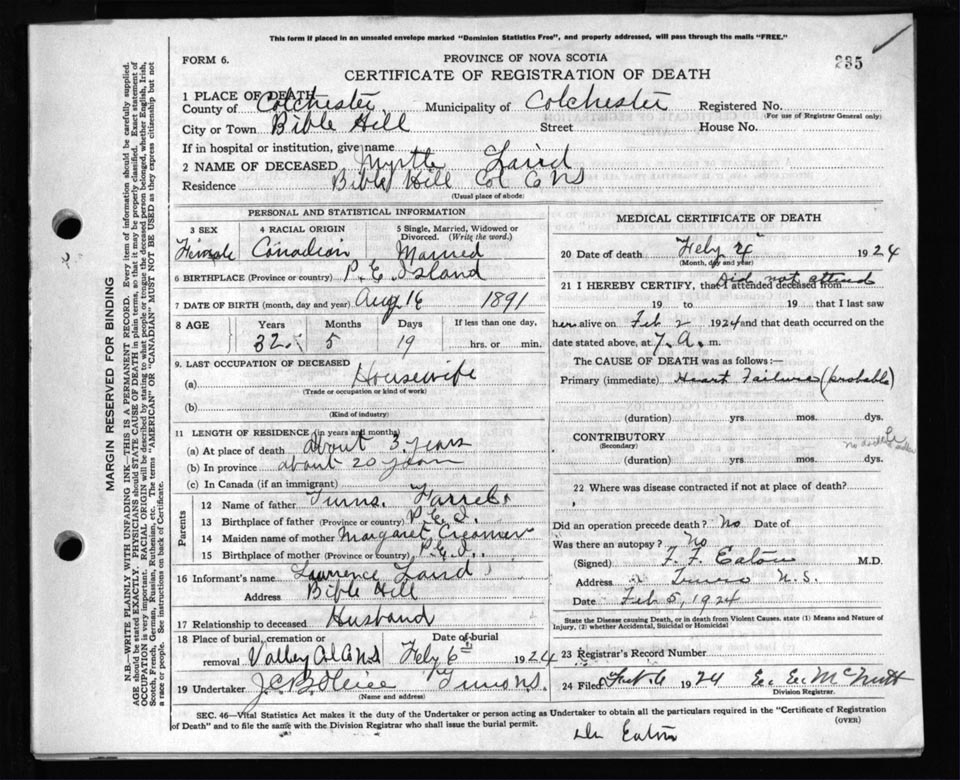 This form if placed in an unsealed envelope marked "Dominion Statistics Free", and properly addressed, will pass through the mails "FREE."
FORM 6.
PROVINCE OF NOVA SCOTIA
235
CERTIFICATE OF REGISTRATION OF DEATH
1 PLACE OF DEATH
County of Colchester Municipality of Colchester Registered No.
(For use of Registrar General only)
City or Town Bible Hill Street House No.
If in hospital or institution, give name
2 NAME OF DECEASED Myrtle Laird
Residence Bible Hill Col Co NS
(Usual place of abode)
PERSONAL AND STATISTICAL INFORMATION
3 SEX 4 RACIAL ORIGIN 5 Single, Married, Widowed or Divorced. (Write the word.)
Female Canadian Married
6 BIRTHPLACE (Province or country) P. E. Island
7 DATE OF BIRTH (month, day and year) Aug 16 1891
8 AGE Years Months Days If less than one day,
32 5 19 hrs. or min.
9. LAST OCCUPATION OF DECEASED
(a) Housewife
(Trade or occupation or kind of work)
(b)
(Kind of industry)
11 LENGTH OF RESIDENCE (in years and months)
(a) At place of death about 3 years
(b) In province about 20 years
(c) In Canada (if an immigrant)
Parents
12 Name of father Farrel
13 Birthplace of father (Province or country) P.E.I.
14 Maiden name of mother Margaret Creamer
15 Birthplace of mother (Province or country) P.E.I.
16 Informant's name Lawrence Laird
Address Bible Hill
17 Relationship to deceased Husband
18 Place of burial, cremation or removal Valley Col Co NS
Date of burial Feby 6th 1924
19 Undertaker J.C.B. Truro N.S.
(Name and address)
MEDICAL CERTIFICATE OF DEATH
20 Date of death Feby 4 1924
(Month, day and year)
21 I HEREBY CERTIFY, that I attended deceased from Did not attend
19 to 19 that I last saw
her alive on Feb 2 1924 and that death occurred on the
date stated above, at 7.A. m.
The CAUSE OF DEATH was as follows:—
Primary (immediate) Heart Failure (probable)
(duration) yrs. mos. dys.
CONTRIBUTORY
(Secondary)
no
(duration) yrs. mos. dys.
22 Where was disease contracted if not at place of death?
Did an operation precede death? No Date of
Was there an autopsy? No
(Signed) F. F. Eaton M.D.
Address Truro N.S.
Date Feb 5, 1924
State the Disease causing Death, or in death from Violent Causes, state (1) Means and Nature of
Injury, (2) whether Accidental, Suicidal or Homicidal
23 Registrar's Record Number
24 Filed Feb 6 1924 E. E. McNutt
Division Registrar.
SEC. 46—Vital Statistics Act makes it the duty of the Undertaker or person acting as Undertaker to obtain all the particulars required in the "Certificate of Registration
of Death" and to file the same with the Division Registrar who shall issue the burial permit.
(OVER)
Dr Eaton
MARGIN RESERVED FOR BINDING
N.B.—WRITE PLAINLY WITH UNFADING INK—THIS IS A PERMANENT RECORD. Every item of information should be carefully supplied.
AGE should be stated EXACTLY. PHYSICIANS should STATE CAUSE OF DEATH in plain terms, so that it may be properly classified. Exact statement of
OCCUPATION is very important. RACIAL ORIGIN will be described by stating to what people or tongue the deceased person belonged, whether English, Irish,
Scotch, French, German, Russian, Ruthenian, etc. The terms "AMERICAN" or "CANADIAN" MUST NOT BE USED as they express citizenship but not
a race or people. See instructions on back of Certificate.